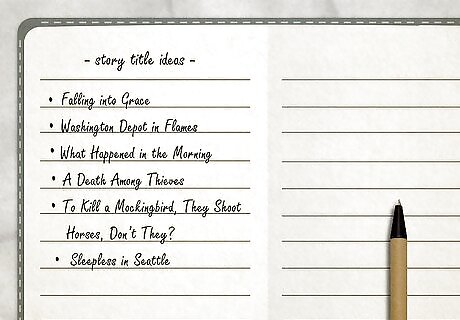 - story title ideas -
• Falling into Grace
• Washington Depot in Flames
• What Happened in the Morning
• A Death Among Thieves
• To Kill a Mockingbird, They Shoot
Horses, Don't They?
• Sleepless in Seattle